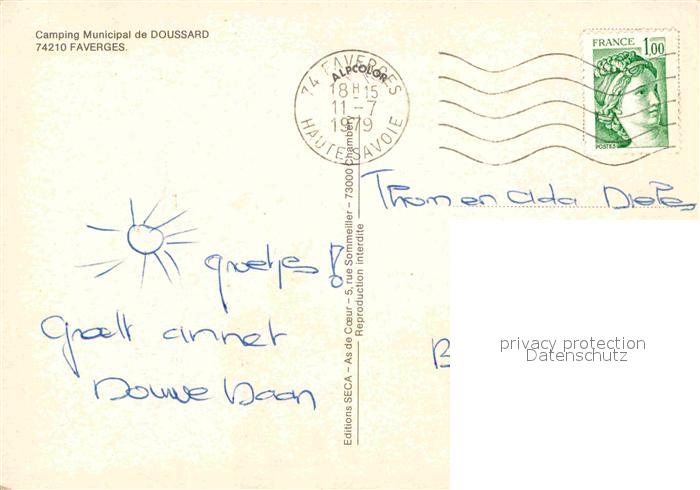 Camping Municipal de DOUSSARD
74210 FAVERGES.
74 FAVERGES
ALPCOLOR
18H15
11-7
1979
HAUTE-SAVOIE
FRANCE 1,00
POSTES
Thom en Ada
groetjes!
annet
Douwe Daan
B
Editions SECA – As de Cœur – 5, rue Sommeiller – 73000 Chambéry
Reproduction interdite
privacy protection
Datenschutz